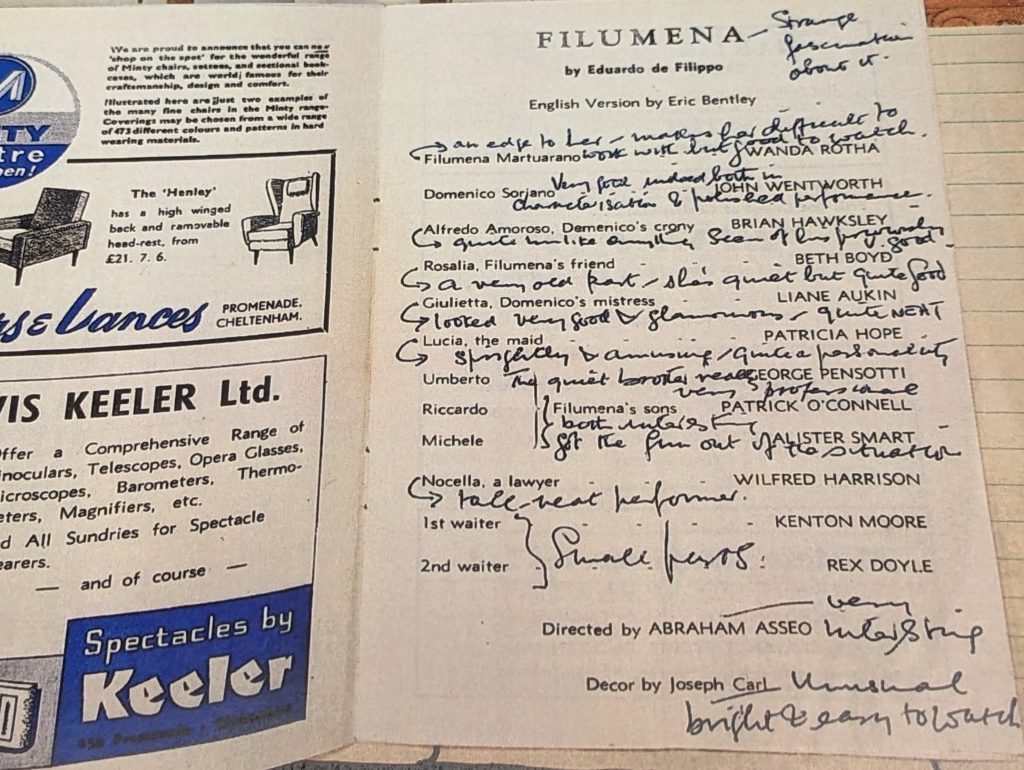 We are proud to announce that you can now
'shop on the spot' for the wonderful range
of Minty chairs, settees, and sectional book-
cases, which are world famous for their
craftsmanship, design and comfort.
Illustrated here are just two examples of
the many fine chairs in the Minty range.
Coverings may be chosen from a wide range
of 473 different colours and patterns in hard
wearing materials.
The 'Henley'
has a high winged
back and removable
head-rest, from
£21. 7. 6.
& Lances
PROMENADE,
CHELTENHAM.
KEELER Ltd.
offer a Comprehensive Range of
Binoculars, Telescopes, Opera Glasses,
Microscopes, Barometers, Thermo-
meters, Magnifiers, etc.
All Sundries for Spectacle
— and of course —
Spectacles by
Keeler
FILUMENA – Strange
fascination
about it.
by Eduardo de Filippo
English Version by Eric Bentley
an edge to her – makes her difficult to
work with but good to watch.
Filumena Martuarano WANDA ROTHA
Very good indeed both in
Domenico Sorjano JOHN WENTWORTH
characterisation & polished performance.
Alfredo Amoroso, Demenico's crony BRIAN HAWKSLEY
quite unlike anything seen of his previously
v. good.
Rosalia, Filumena's friend BETH BOYD
a very old part – she's quiet but quite good
Giulietta, Domenico's mistress LIANE AUKIN
looked very good & glamorous – quite NEAT
Lucia, the maid PATRICIA HOPE
sprightly & amusing / quite a personality
Umberto The quiet brother GEORGE PENSOTTI
very professional
Riccardo Filumena's sons PATRICK O'CONNELL
both interesting
Michele ALISTER SMART
got the fun out of the situation
Nocella, a lawyer WILFRED HARRISON
tall neat performer.
1st waiter KENTON MOORE
Small parts.
2nd waiter REX DOYLE
very
Directed by ABRAHAM ASSEO interesting
Decor by Joseph Carl Unusual
bright & easy to watch